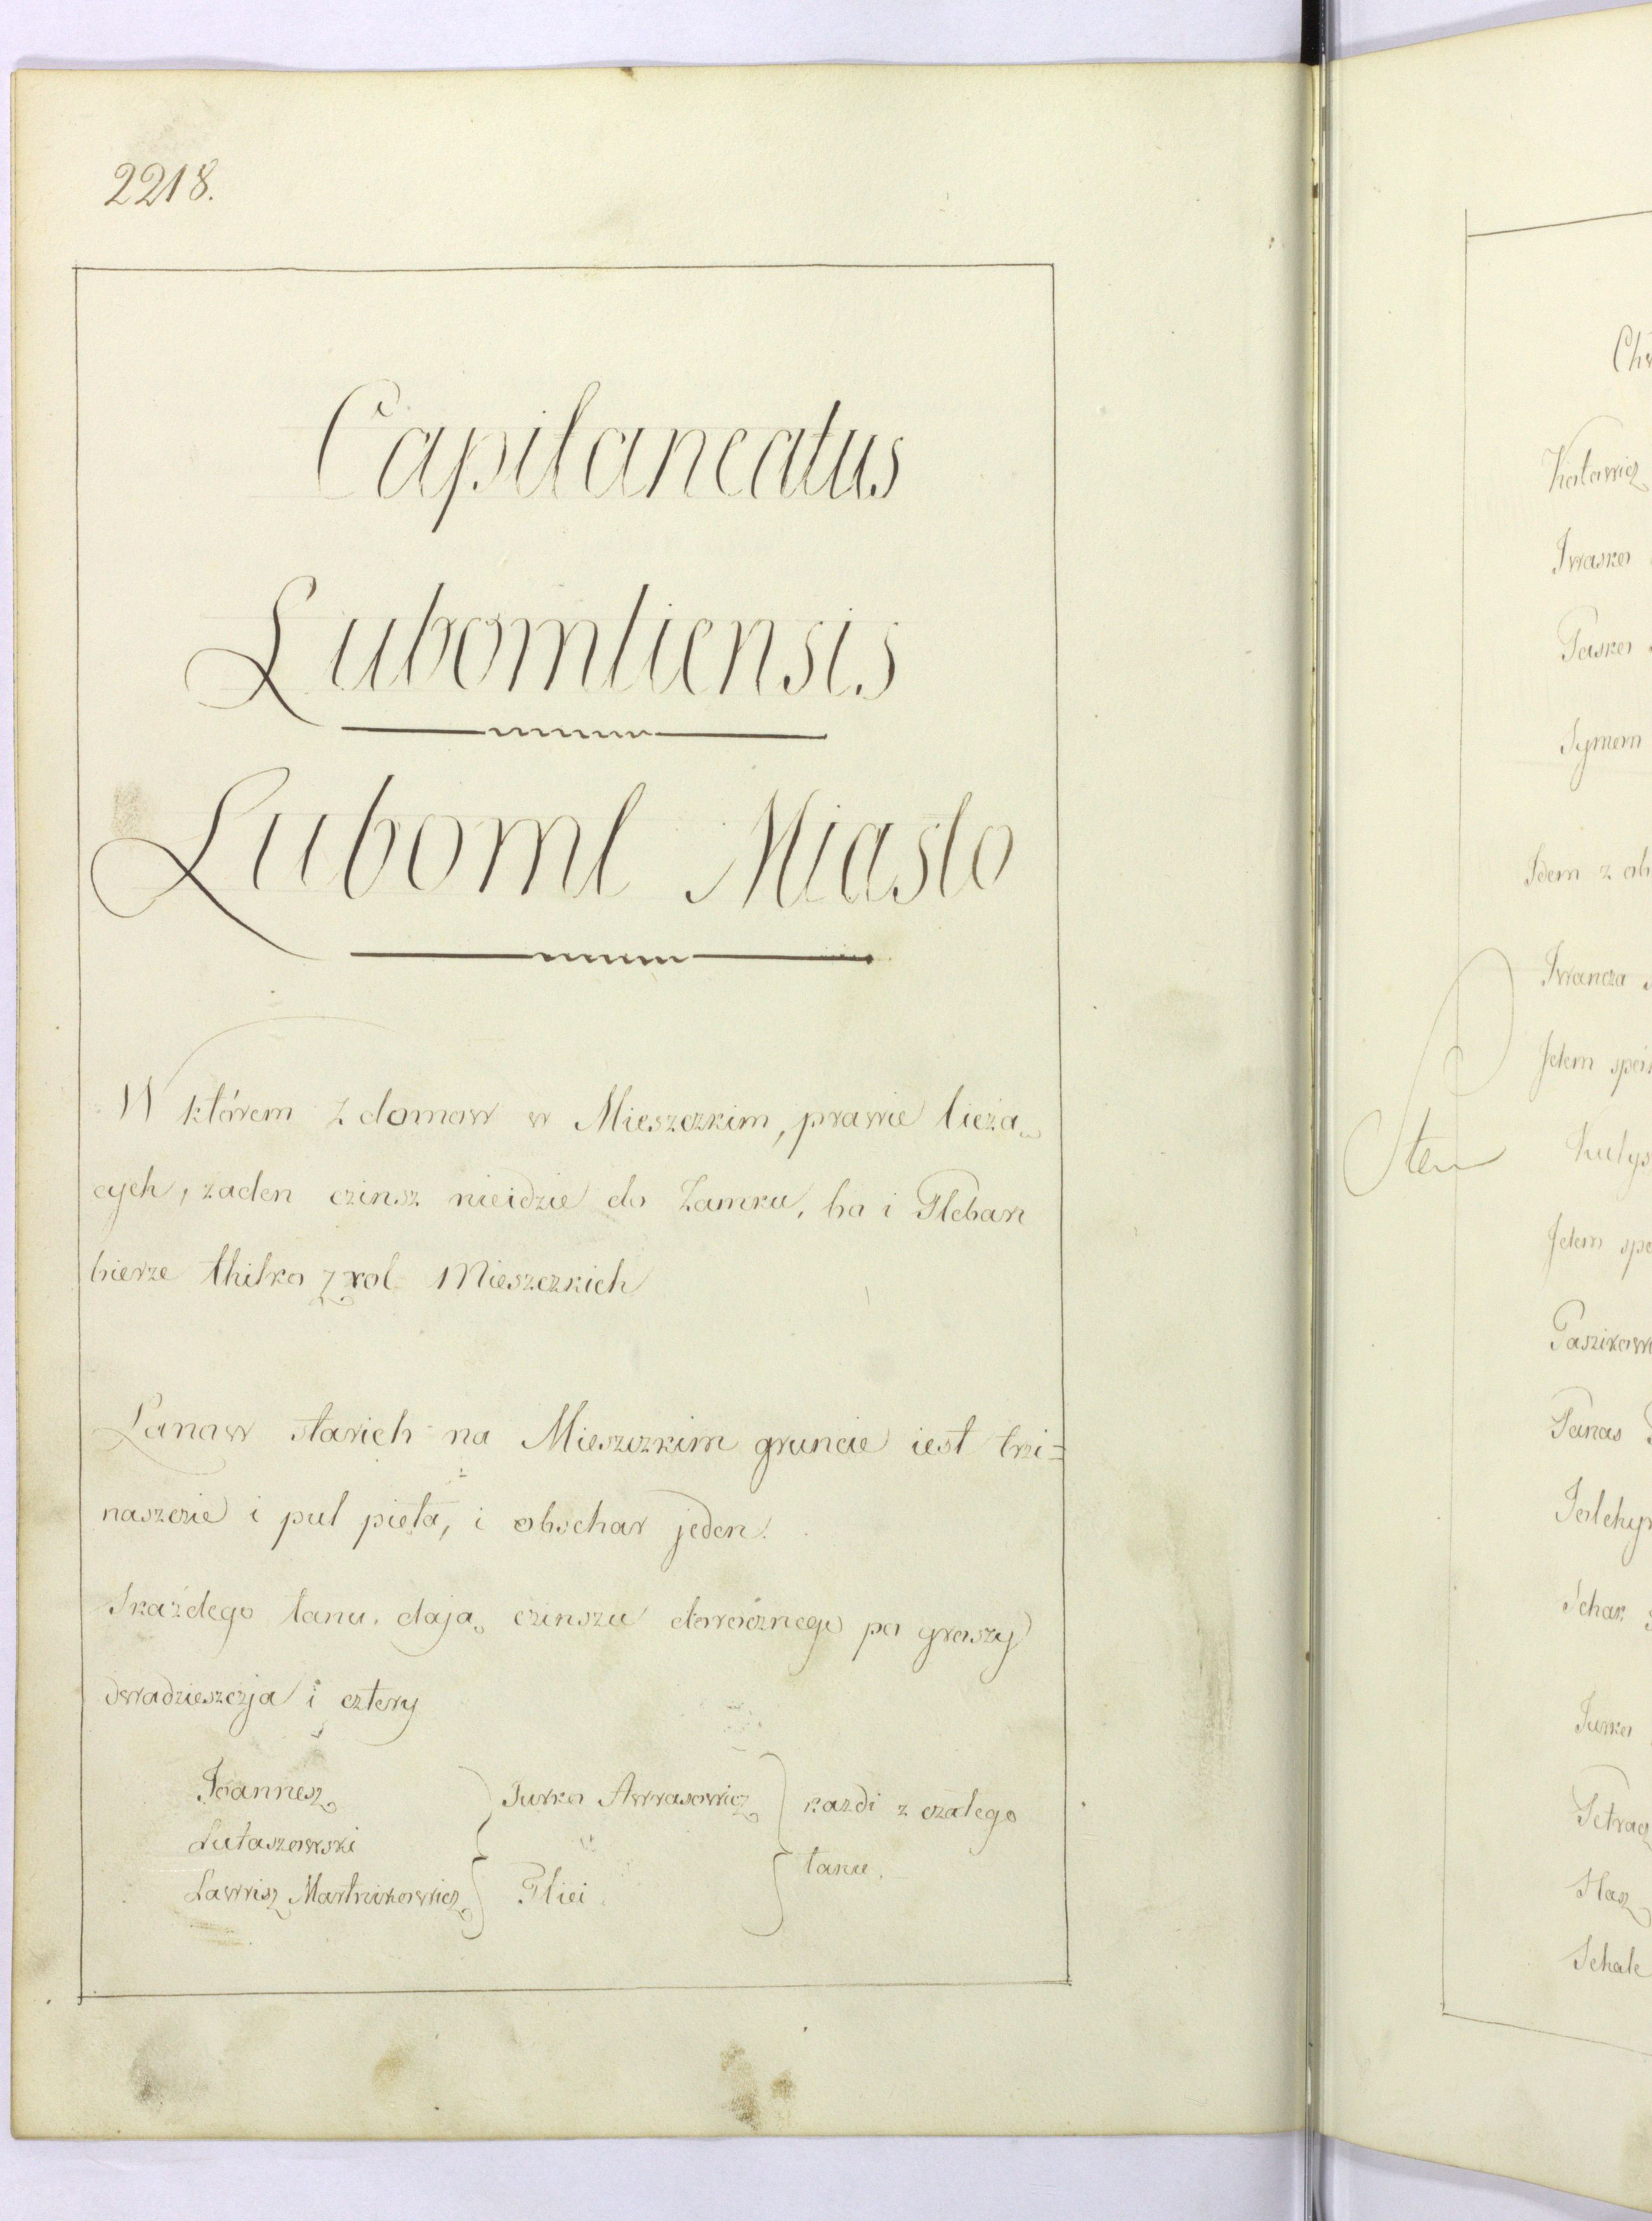 2218.
Capitaneatus
Lubomliensis
Luboml Miasto
W którem z domow w Mieszczkim, prawie lieżą
cych, żaden czinsz nieidzie do Zamku, bo i Pleban
bierze thilko z rol Mieszczkich
Lanow starich na Mieszczkim gruncie iest trzi=
naszczie i pul pięta, i obschar jeden.
Skażdego łanu, dają czinszu dorocznego po groszy
dwadzieszczja i cztery
Joannesz
Lutaszowski
Lawrisz Martinkowicz
Jurko Awrasowicz
Pliei
każdi z czałego
łanu.
Iwasko
Pasko
Symon
Idem z ob
Iwancza
Item
Item
Panas
Jurko